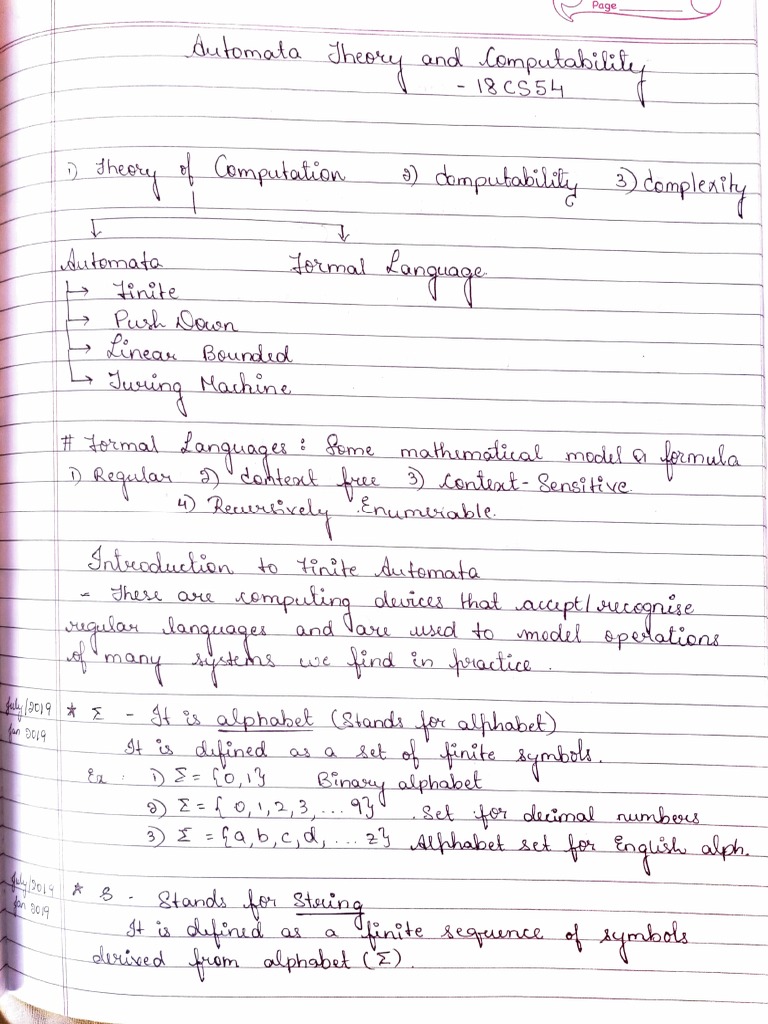 Page
Automata Theory and Computability
- 18CS54
1) Theory of Computation 2) Computability 3) Complexity
Automata Formal Language
→ Finite
→ Push Down
→ Linear Bounded
→ Turing Machine
# Formal Languages : Some mathematical model & formula
1) Regular 2) Context free 3) Context-Sensitive
4) Recursively Enumerable.
Introduction to Finite Automata
- These are computing devices that accept/recognise
regular languages and are used to model operations
of many systems we find in practice.
July/2019 * Σ - It is alphabet (Stands for alphabet)
Jan 2019 It is defined as a set of finite symbols.
Ex : 1) Σ = {0,1} Binary alphabet
2) Σ = { 0, 1, 2, 3, ... 9} Set for decimal numbers
3) Σ = {a, b, c, d, ... z} Alphabet set for English alph.
July/2019 * S - Stands for String
Jan 2019 It is defined as a finite sequence of symbols
derived from alphabet (Σ).